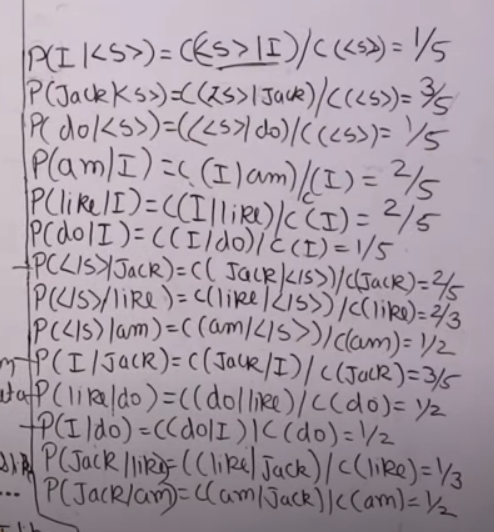 P(I|<s>) = C(<s>|I)/C(<s>) = 1/5
P(Jack|<s>) = C(<s>|Jack)/C(<s>) = 3/5
P(do|<s>) = C(<s>|do)/C(<s>) = 1/5
P(am/I) = C (I|am)/C(I) = 2/5
P(like/I) = C(I|like)/C(I) = 2/5
P(do|I) = C(I/do)/C(I) = 1/5
P(</s>|Jack) = C(Jack|</s>)/C(Jack) = 2/5
P(</s>/like) = C(like/</s>)/C(like) = 2/3
P(</s>|am) = C(am/</s>)/C(am) = 1/2
P(I/Jack) = C(Jack/I)/C(Jack) = 3/5
P(like|do) = C(do|like)/C(do) = 1/2
P(I|do) = C(do|I)/C(do) = 1/2
P(Jack|like) = C(like|Jack)/C(like) = 1/3
... P(Jack/am) = C(am/Jack)/C(am) = 1/2